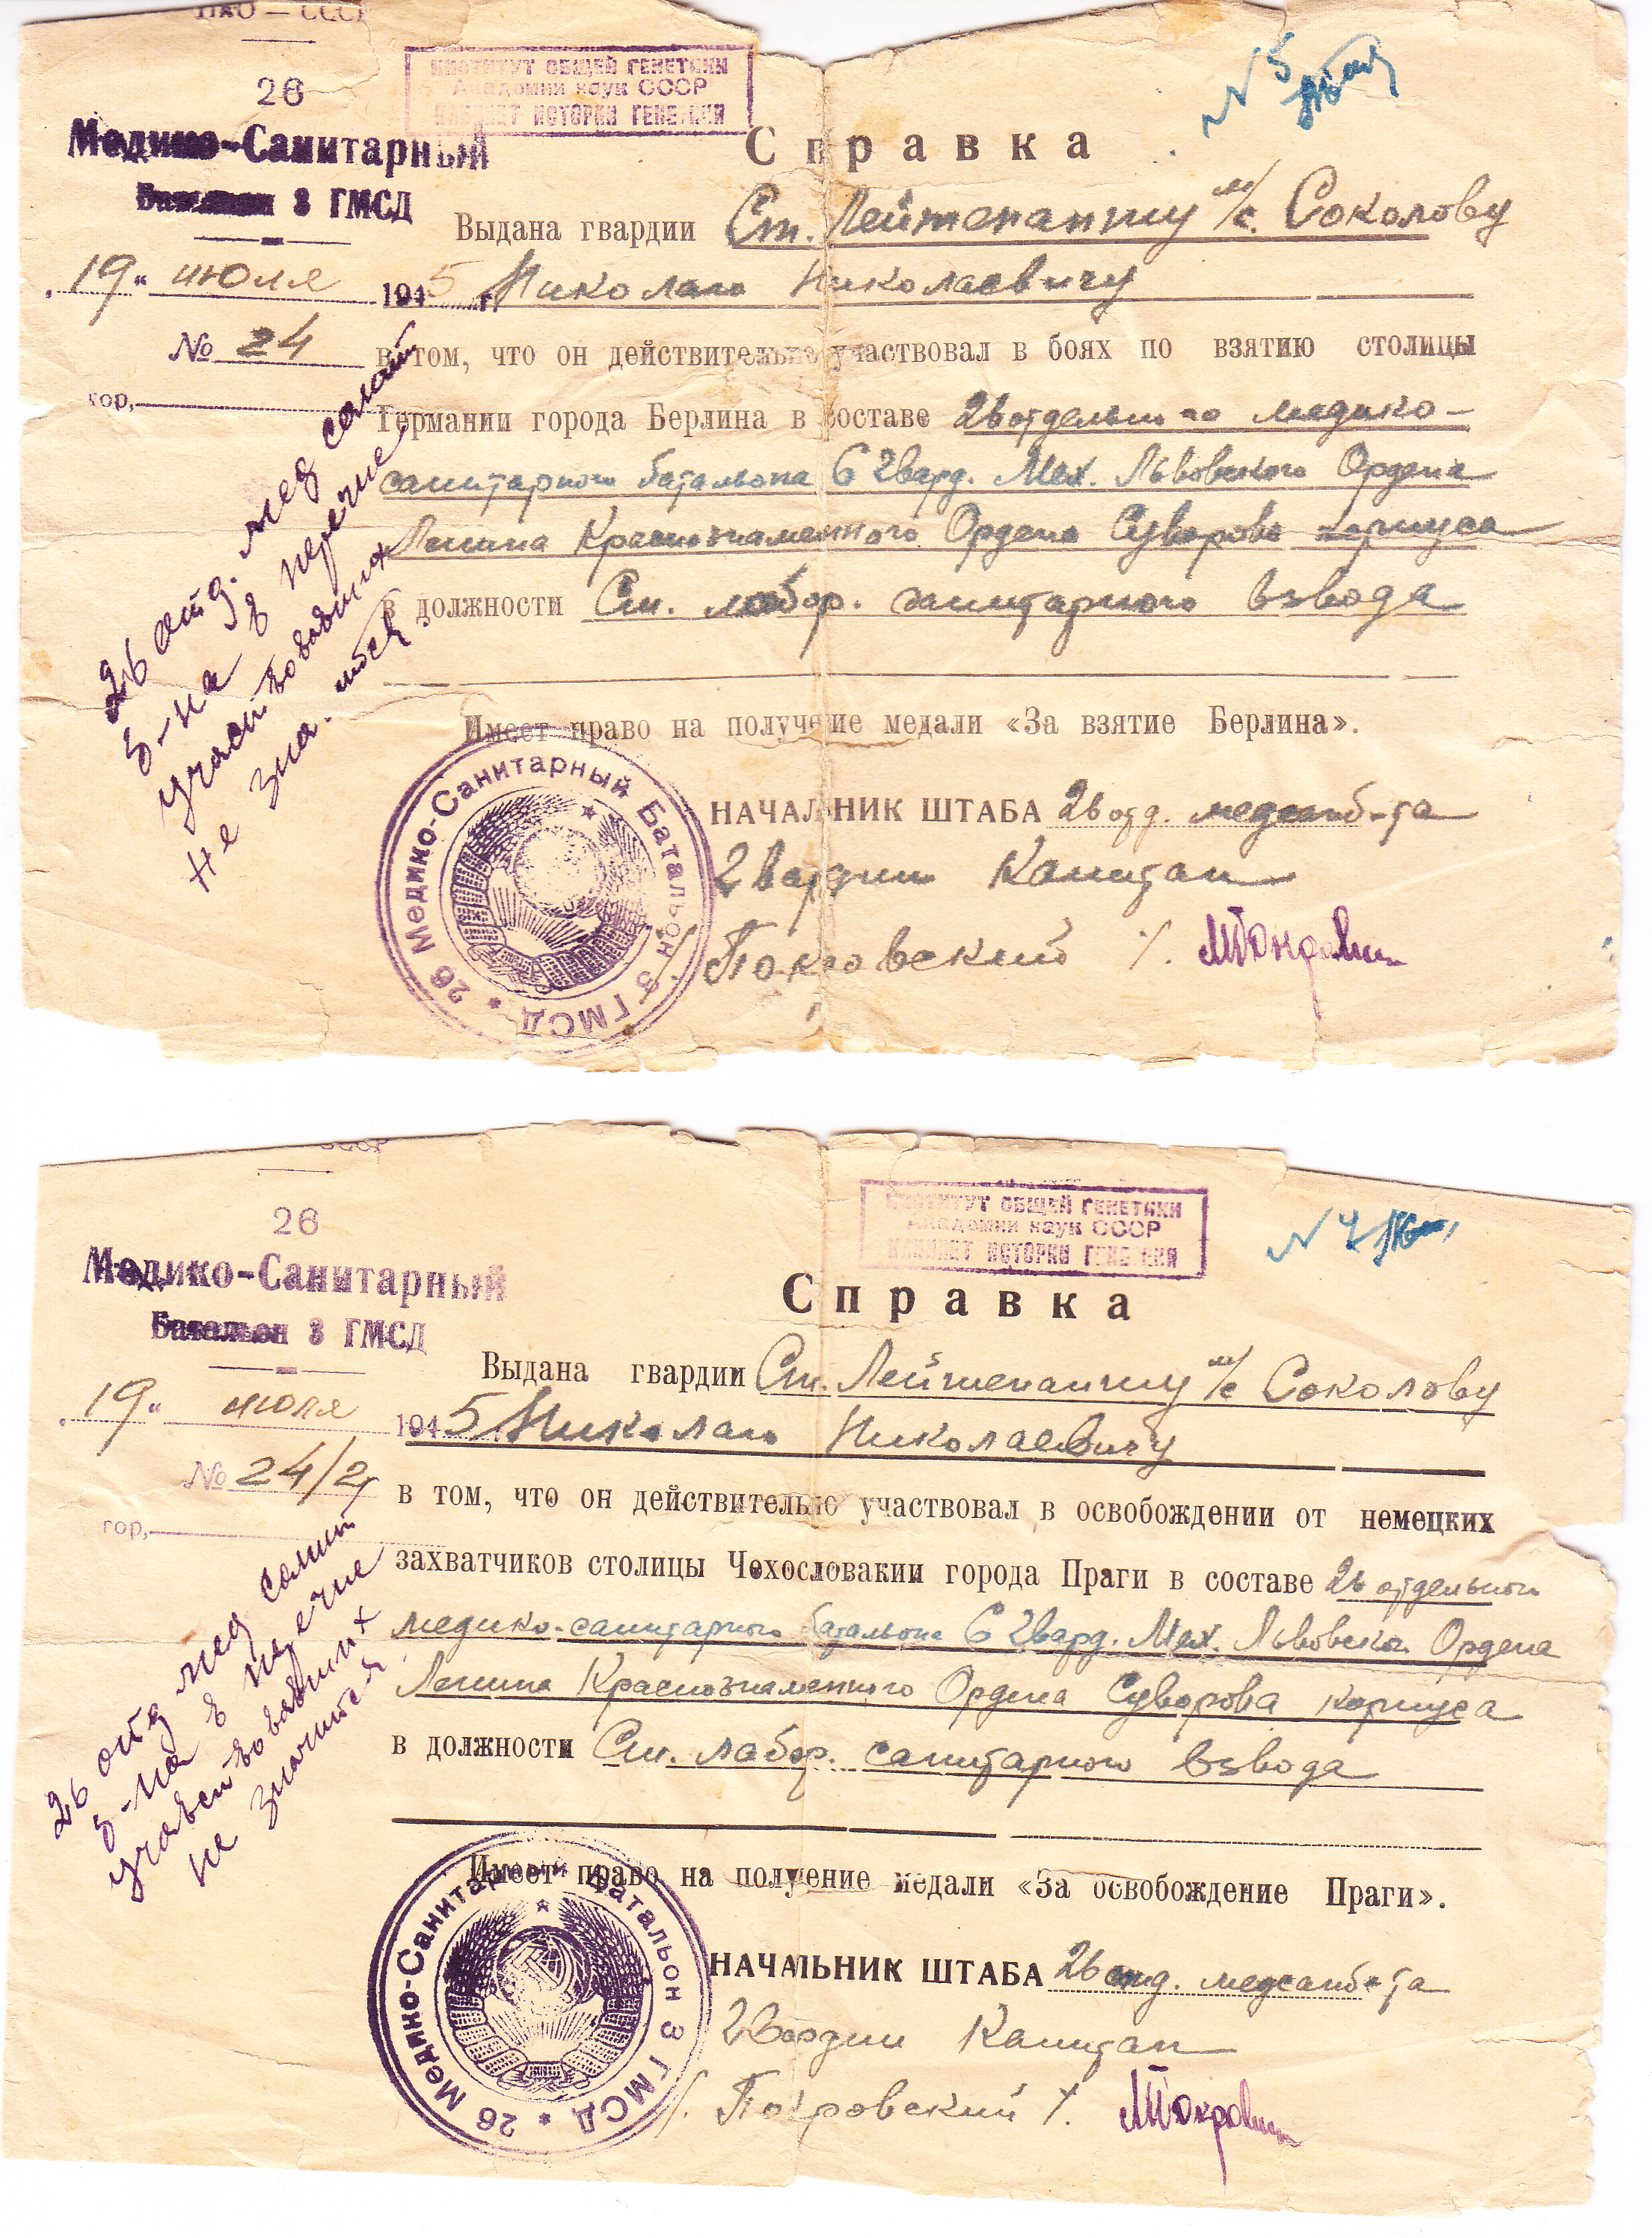 НКО — СССР
26
Медико-Санитарный
Батальон 3 ГМСД
„19“ июля 1945 г.
№ 24
гор,
ИНСТИТУТ ОБЩЕЙ ГЕНЕТИКИ
Академии наук СССР
КАБИНЕТ ИСТОРИИ ГЕНЕТИКИ
N 5
Справка
Выдана гвардии Ст. Лейтенанту м/с. Соколову
Николаю Николаевичу
в том, что он действительно участвовал в боях по взятию столицы
Германии города Берлина в составе 26 отдельного медико-
санитарного батальона 6 Гвард. Мех. Львовского Ордена
Ленина Краснознаменного Ордена Суворова корпуса
в должности Ст. лабор. санитарного взвода
Имеет право на получение медали «За взятие Берлина».
НАЧАЛЬНИК ШТАБА 26 отд. медсанб-та
Гвардии Капитан
/. Покровский /.
26 Медико-Санитарный Батальон 3 ГМСД *
26 отд. мед санит
б-на в перечне
участвовавших
не зна-тся.
СССР
26
Медико-Санитарный
Батальон 3 ГМСД
„19“ июля 1945
№ 24/2
гор,
ИНСТИТУТ ОБЩЕЙ ГЕНЕТИКИ
Академии наук СССР
КАБИНЕТ ИСТОРИИ ГЕНЕТИКИ
N 4
Справка
Выдана гвардии Ст. Лейтенанту м/с Соколову
Николаю Николаевичу
в том, что он действительно участвовал в освобождении от немецких
захватчиков столицы Чехословакии города Праги в составе 26 отдельного
медико-санитарного батальона 6 Гвард. Мех. Львовского Ордена
Ленина Краснознаменного Ордена Суворова корпуса
в должности Ст. лабор. санитарного взвода
Имеет право на получение медали «За освобождение Праги».
НАЧАЛЬНИК ШТАБА 26 отд. медсанб-та
Гвардии Капитан
/. Покровский /.
26 Медико-Санитарный Батальон 3 ГМСД *
26 отд мед санит
б-на в перечне
участвовавших
не значится